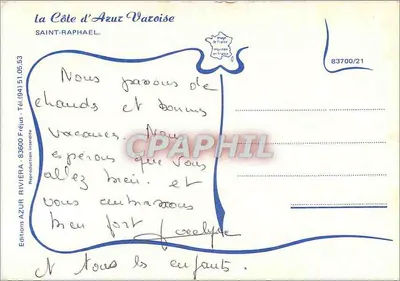 la Côte d'Azur Varoise
SAINT-RAPHAEL.
83700/21
Nous passons de
chauds et bonnes
vacances. Nous
espérons que vous
allez bien. et
vous embrassons
bien fort Jocelyne
et Tous les enfants.
CPAPHIL
Editions AZUR RIVIERA. 83600 Fréjus - Tél. (94) 51.05.53
Reproduction interdite